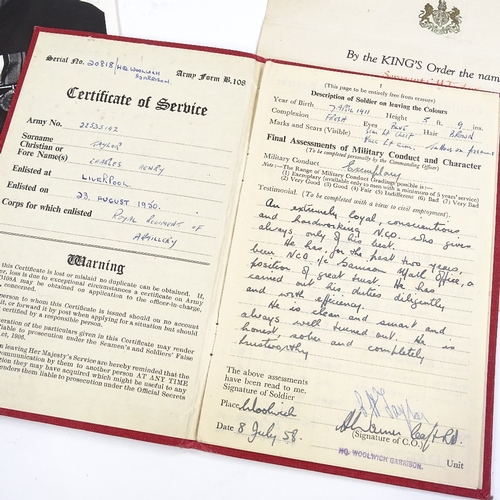 Serial No. 20818/HQ WOOLWICH GARRISON.
Army Form B.108
Certificate of Service
Army No. 22535102
Surname TAYLOR
Christian or
Fore Name(s) CHARLES HENRY
Enlisted at LIVERPOOL
Enlisted on 23. AUGUST 1950.
Corps for which enlisted ROYAL REGIMENT OF
ARTILLERY
Warning
this Certificate be lost or mislaid no duplicate can be obtained. If,
er, loss is due to exceptional circumstances a certificate on Army
108A may be obtained on application to the officer-in-charge,
rds.
person to whom this Certificate is issued should on no account
it, or forward it by post when applying for a situation but should
certified by a responsible person.
eration of the particulars given in this Certificate may render
liable to prosecution under the Seamen's and Soldiers' False
Act, 1906.
leaving Her Majesty's Service are hereby reminded that the
communication by them to another person at ANY TIME
tion they may have acquired which might be useful to any
enders them liable to prosecution under the Official Secrets
By the KING'S Order the nam
1
(This page to be entirely free from erasure)
Description of Soldier on leaving the Colours
Year of Birth 7 APRIL 1911 Height 5 ft. 9 ins.
Complexion FRESH Eyes BLUE Hair BROWN
Marks and Scars (Visible)
Final Assessments of Military Conduct and Character
(To be completed personally by the Commanding Officer)
Military Conduct Exemplary
Note:—The Range of Military Conduct Gradings possible is—
(1) Exemplary (available only to men with a minimum of 5 years' service)
(2) Very Good (3) Good (4) Fair (5) Indifferent (6) Bad (7) Very Bad
Testimonial. (To be completed with a view to civil employment)
An extremely loyal, conscientious
and hardworking N.C.O. who gives
always only of his best.
He has, for the past two years,
been N.C.O. i/c Garrison Mail Office, a
position of great trust. He has
carried out his duties diligently
and with efficiency.
He is clean and smart and
always well turned out. He is
honest sober and completely
trustworthy
The above assessments
have been read to me.
Signature of Soldier
Place Woolwich
(Signature of C.O.)
Date 8 July 58.
HQ. WOOLWICH GARRISON. Unit